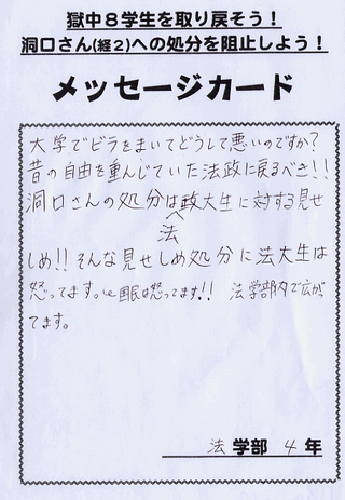 獄中8学生を取り戻そう!
洞口さん(経2)への処分を阻止しよう!
メッセージカード
大学でビラをまいてどうして悪いのですか?
昔の自由を重んじていた法政に戻るべき!!
洞口さんの処分は政大生に対する見せ
法
しめ!!そんな見せしめ処分に法大生は
怒ってます。国民は怒ってます!! 法学部内で広が
てます。
法 学部 4 年